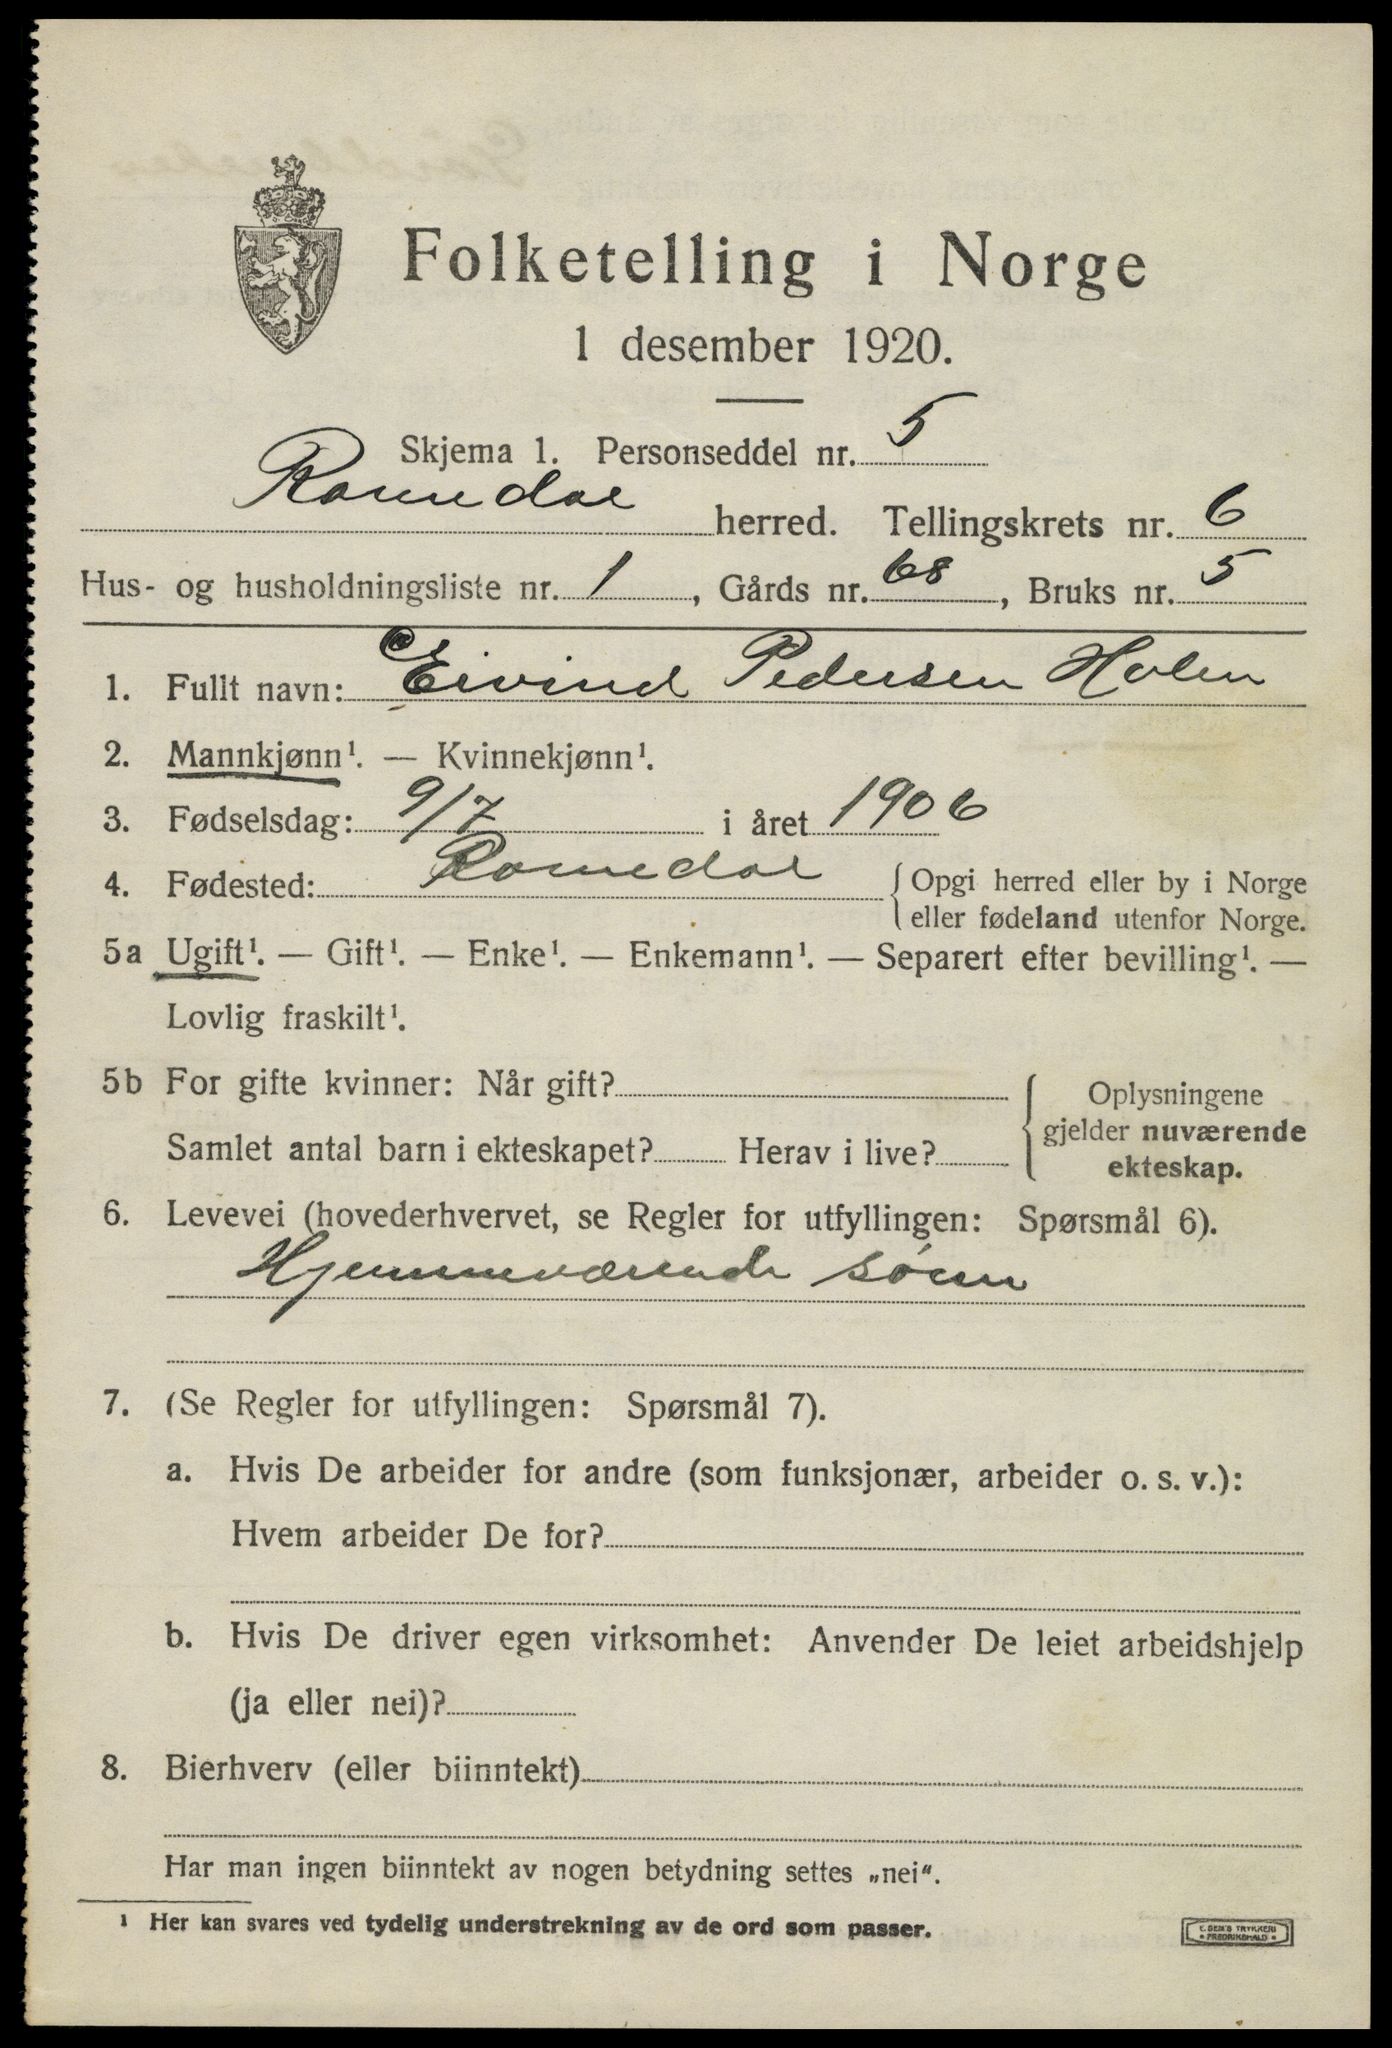 Folketelling i Norge
1 desember 1920.
Skjema 1. Personseddel nr. 5
Romedal herred. Tellingskrets nr. 6
Hus- og husholdningsliste nr. 1, Gårds nr. 68, Bruks nr. 5
1. Fullt navn: Eivind Pedersen Holen
2. Mannkjønn¹. — Kvinnekjønn¹.
3. Fødselsdag: 9/7 i året 1906
4. Fødested: Romedal { Opgi herred eller by i Norge
eller fødeland utenfor Norge.
5a Ugift¹. — Gift¹. — Enke¹. — Enkemann¹. — Separert efter bevilling¹. —
Lovlig fraskilt¹.
5b For gifte kvinner: Når gift? { Oplysningene
gjelder nuværende
Samlet antal barn i ekteskapet? Herav i live? ekteskap.
6. Levevei (hovederhvervet, se Regler for utfyllingen: Spørsmål 6).
Hjemmeværende sønn
7. (Se Regler for utfyllingen: Spørsmål 7).
a. Hvis De arbeider for andre (som funksjonær, arbeider o. s. v.):
Hvem arbeider De for?
b. Hvis De driver egen virksomhet: Anvender De leiet arbeidshjelp
(ja eller nei)?
8. Bierhverv (eller biinntekt)
Har man ingen biinntekt av nogen betydning settes „nei“.
¹ Her kan svares ved tydelig understrekning av de ord som passer.
E. SEM'S TRYKKERI
• FREDRIKSHALD •